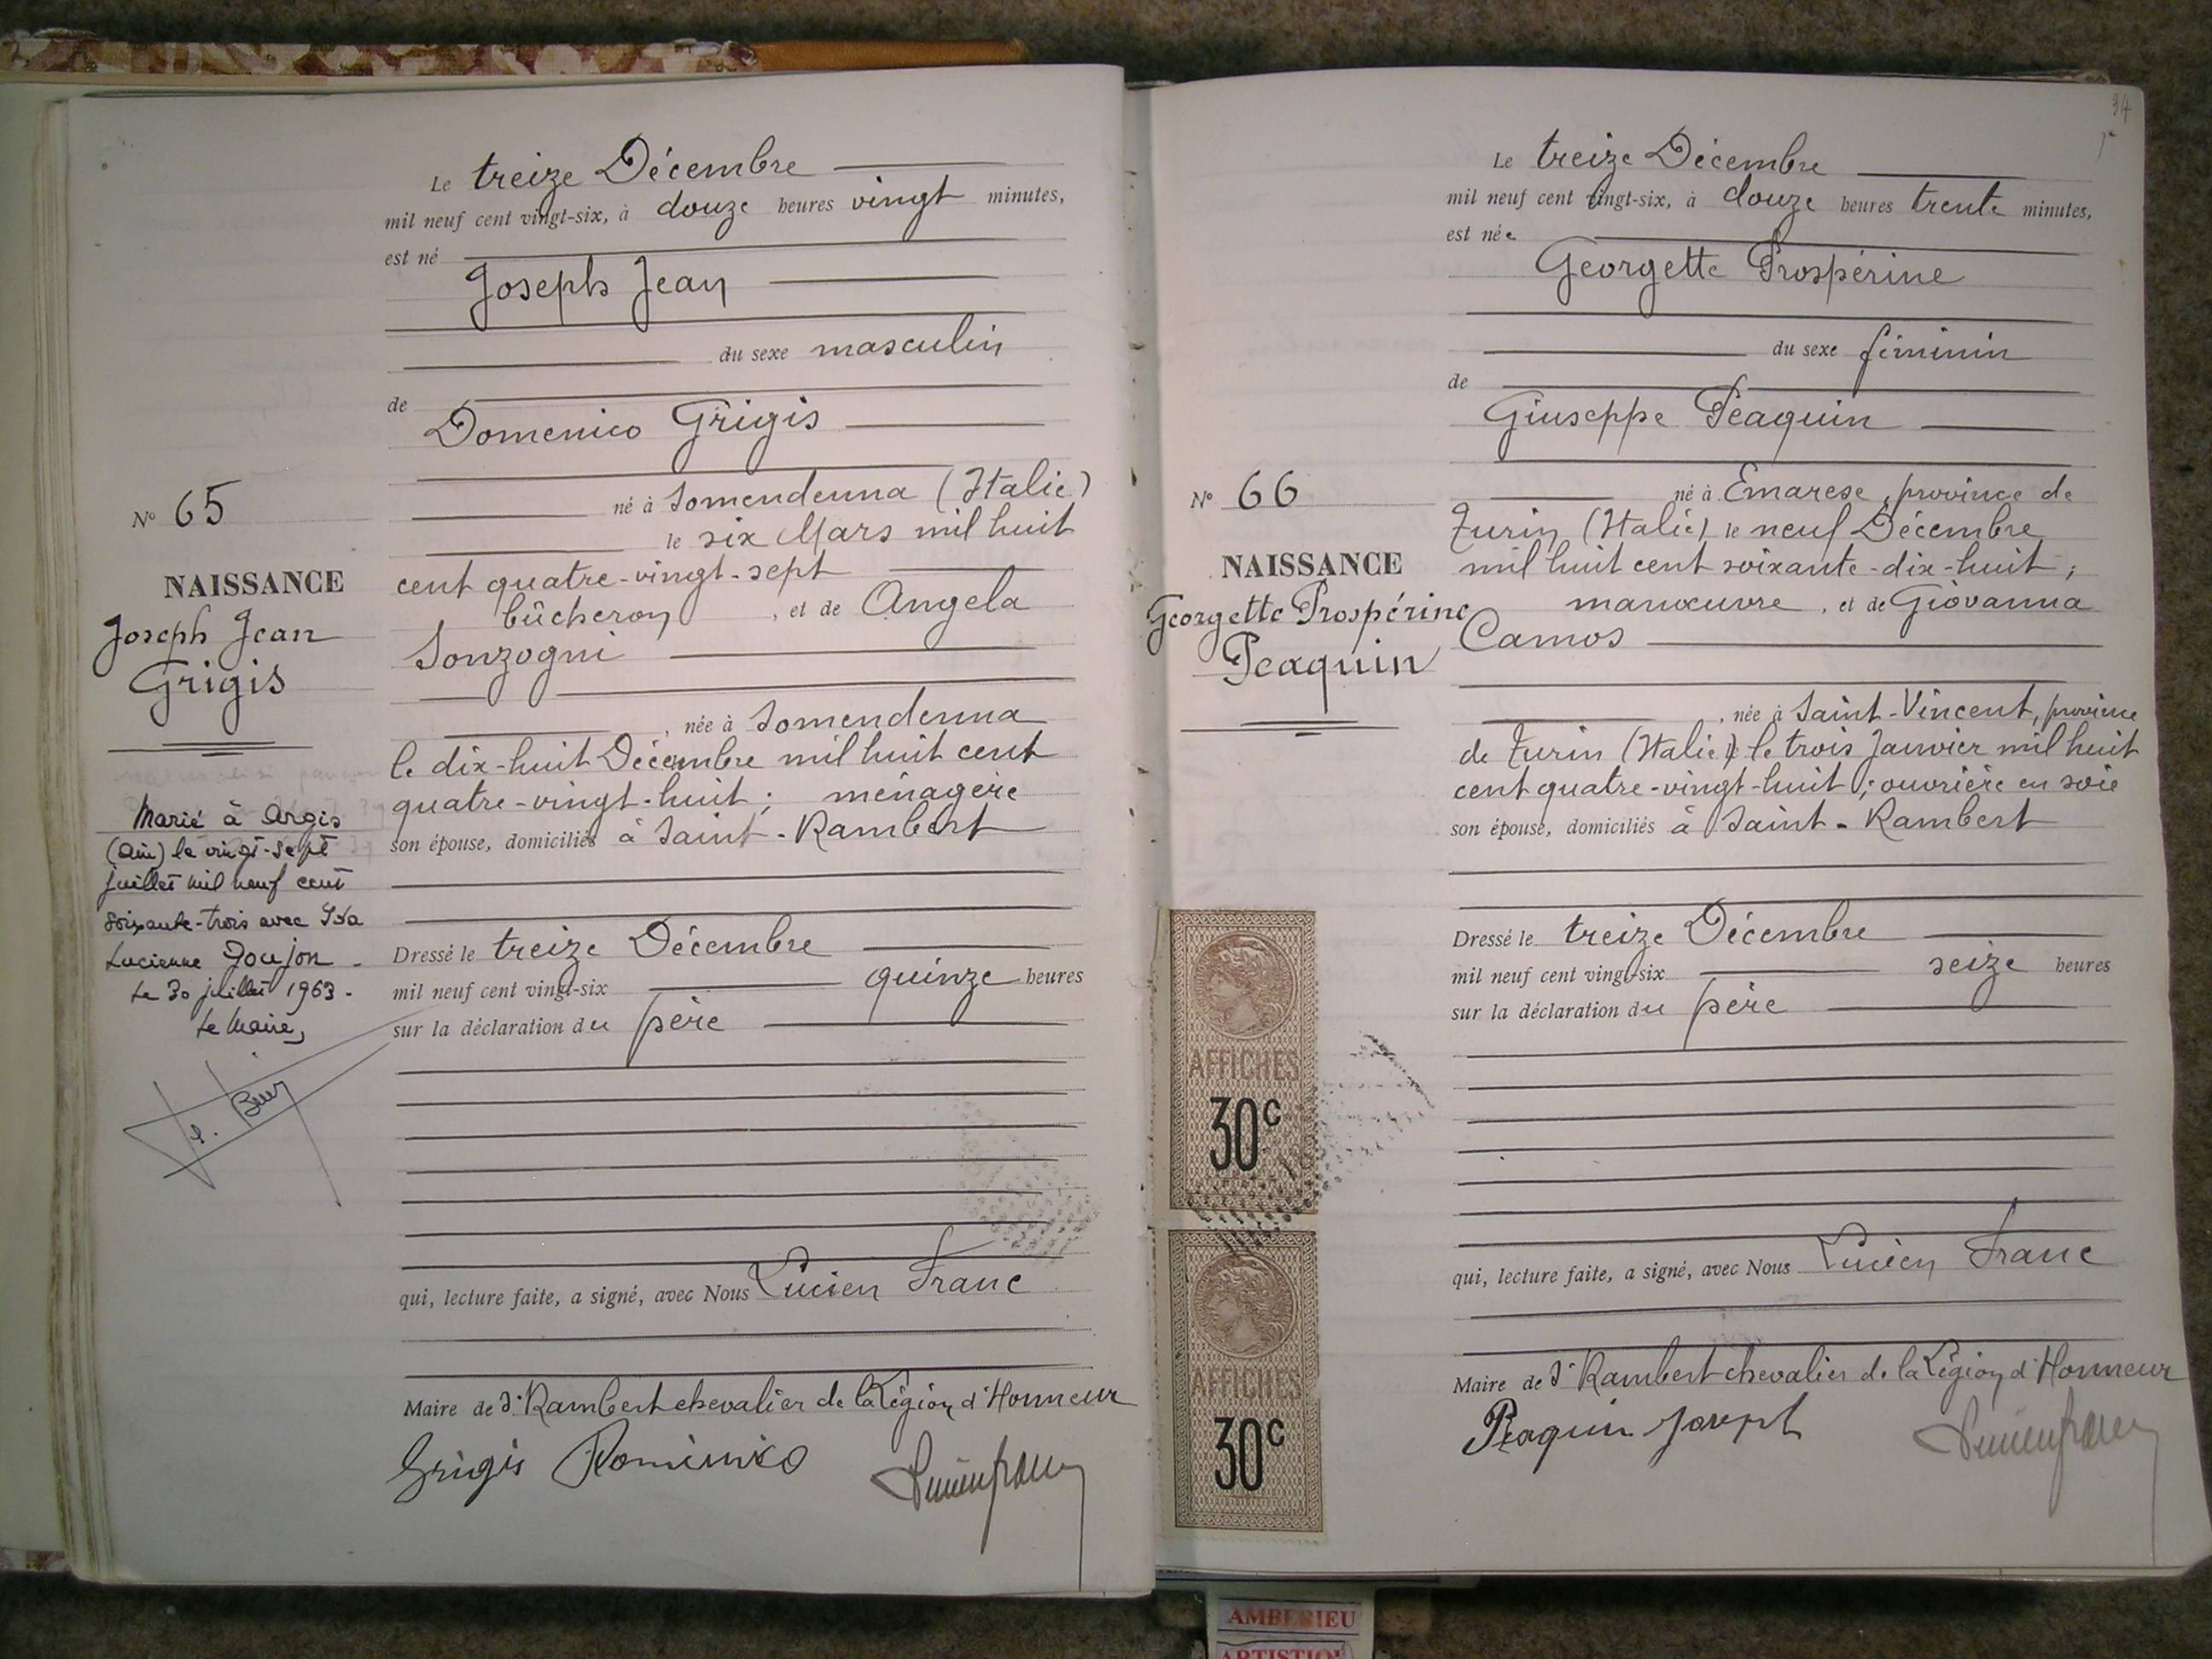 Le treize Décembre
mil neuf cent vingt-six, à douze heures vingt minutes,
est né
Joseph Jean
du sexe masculin
de
Domenico Grigis
né à Somendenna (Italie)
le six Mars mil huit
cent quatre-vingt-sept
bûcheron, et de Angela
Sonzogni
, née à Somendenna
le dix-huit Décembre mil huit cent
quatre-vingt-huit; ménagère
son épouse, domiciliés à Saint-Rambert
Dressé le treize Décembre
mil neuf cent vingt-six quinze heures
sur la déclaration du père
qui, lecture faite, a signé, avec Nous Lucien Franc
Maire de St Rambert chevalier de la Légion d'Honneur
Grigis Dominico
N° 65
NAISSANCE
Joseph Jean
Grigis
Marié à Argis
(Ain) le vingt-sept
juillet mil neuf cent
soixante-trois avec
Lucienne Goujon -
Le 30 juillet 1963.
Le Maire,
34
Le treize Décembre
mil neuf cent vingt-six, à douze heures trente minutes,
est née
Georgette Prospérine
du sexe féminin
de
Giuseppe Peaquin
né à Emarese, province de
Turin (Italie) le neuf Décembre
mil huit cent soixante-dix-huit;
manœuvre, et de Giovanna
Camos
, née à Saint-Vincent, province
de Turin (Italie) le trois Janvier mil huit
cent quatre-vingt-huit; ouvrière en soie
son épouse, domiciliés à Saint-Rambert
Dressé le treize Décembre
mil neuf cent vingt-six seize heures
sur la déclaration du père
qui, lecture faite, a signé, avec Nous Lucien Franc
Maire de St Rambert chevalier de la Légion d'Honneur
Peaquin Joseph
N° 66
NAISSANCE
Georgette Prospérine
Peaquin
AFFICHES
30c
AFFICHES
30c
AMBERIEU